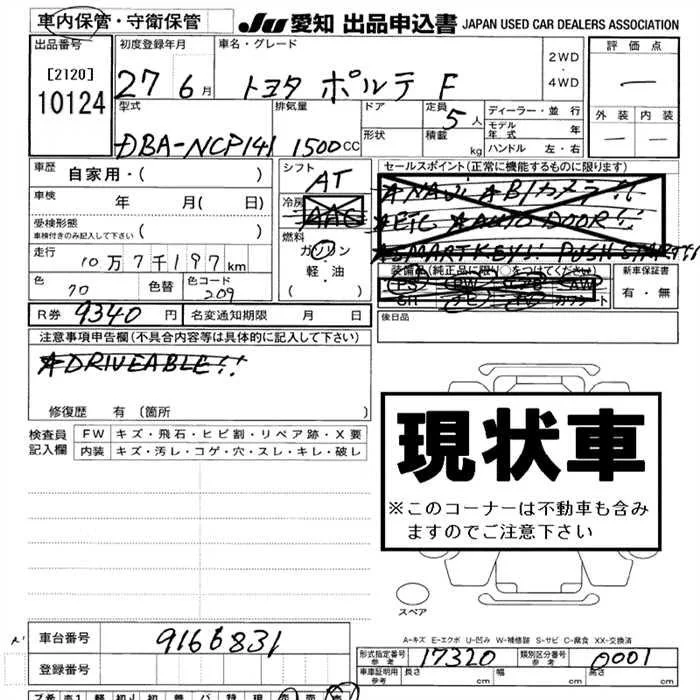 車内保管・守衛保管 JU 愛知 出品申込書 JAPAN USED CAR DEALERS ASSOCIATION
出品番号 [2120] 10124
初度登録年月 27 6月
車名・グレード トヨタ ポルテ F
2WD・4WD
評価点 —
外装 — 内装 —
型式 DBA-NCP141
排気量 1500cc
ドア 形状
定員 5人
積載 kg
ディーラー・並行
モデル年式 年
ハンドル 左・右
車歴 自家用・( )
車検 年 月( 日)
受検形態
車検付きのみ記入して下さい ( )
走行 10万7千197km
色 クロ 色替 色コード 209
R券 9340円 名変通知期限 月 日
シフト AT
冷房 AAC
燃料 ガソリン
軽・油
( )
セールスポイント(正常に機能するものに限ります)
★NAVI ★B/カメラ!!
★ETC ★AUTO DOOR!!
★SMART KEY!! PUSH START!!
装備品(純正品に限り○をつけてください)
PS PW エアB AW
SR ナビ カワシート
新車保証書 有・無
後日品
注意事項申告欄(不具合内容等は具体的に記入して下さい)
★DRIVEABLE!!
修復歴 有 (箇所 )
検査員記入欄
FW キズ・飛石・ヒビ割・リペア跡・X要
内装 キズ・汚レ・コゲ・穴・スレ・キレ・破レ
現状車
※このコーナーは不動車も含み
ますのでご注意下さい
スペア
A-キズ E-エクボ U-凹み W-補修跡 S-サビ C-腐食 XX-交換済
車台番号 9166831
登録番号
形式指定番号 参考 17320 類別区分番号 参考 0001
車車証明用 参考 長さ cm 幅 cm 高さ cm